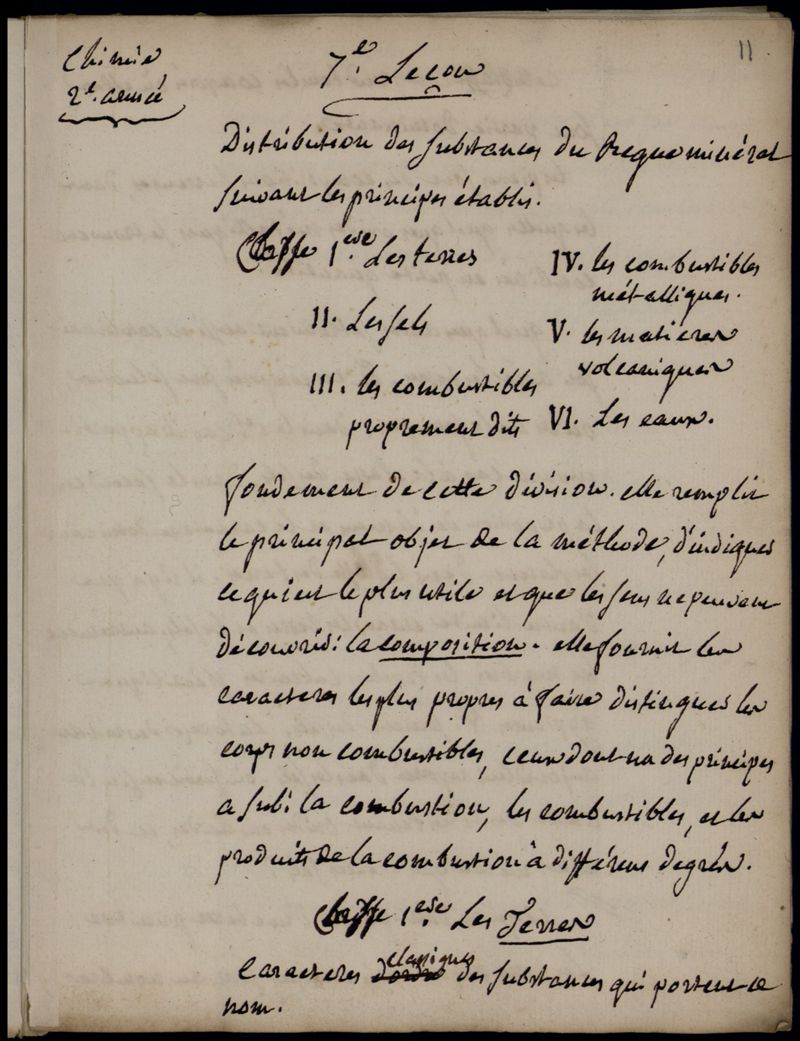 11
Chimie
2e. année
7e. Leçon
Distribution des substances du Regne minéral
suivant les principes établis.
Classe 1ere. Les terres
II. Les sels
III. les combustibles
proprement dits
IV. les combustibles
métalliques.
V. les matieres
volcaniques
VI. Les eaux.
fondement de cette division. elle remplit
le principal objet de la méthode, d'indiquer
ce qui est le plus utile et que les sens ne peuvent
découvrir: la composition. elle fournit les
caracteres les plus propres à faire distinguer les
corps non combustibles, ceux dont un des principes
a subi la combustion, les combustibles, et les
produits de la combustion à différens degrés.
Classe 1ere. Les Terres
classiques
Caracteres d'ordre des substances qui portent ce
nom.